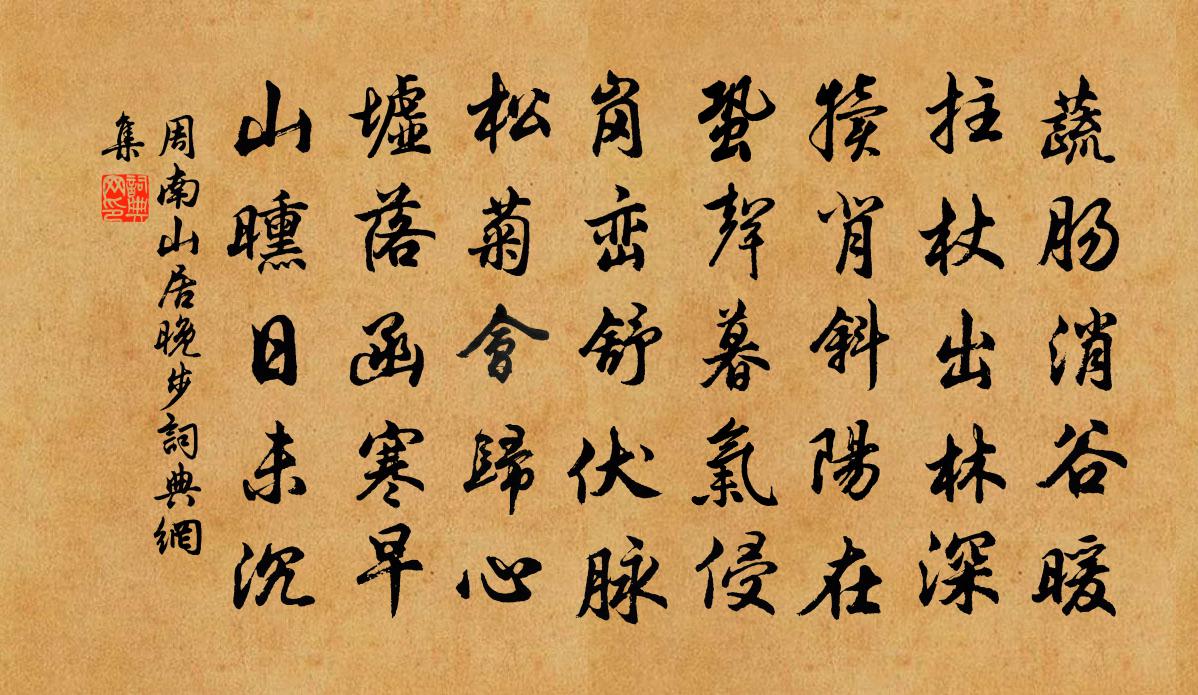 蔬肠消谷暖
拄杖出林深
犊背斜陽在
蛩聲暮氣侵
岗峦舒伏脉
松菊會歸心
墟落函寒早
山曛日未沉
周南山居晚步詞典網
集
詞典网印